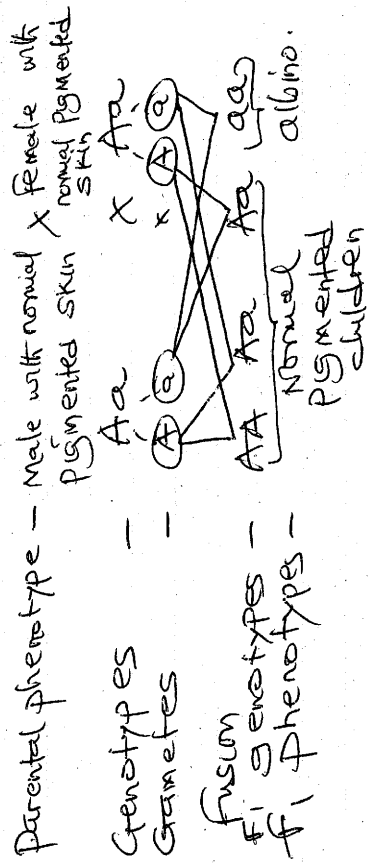 Parental phenotype – Male with normal pigmented skin X female with normal pigmented skin
Genotypes – Aa X Aa
Gametes – A a x A a
Fusion
F1 genotypes – AA Aa Aa aa
F1 phenotypes – Normal pigmented children albino.